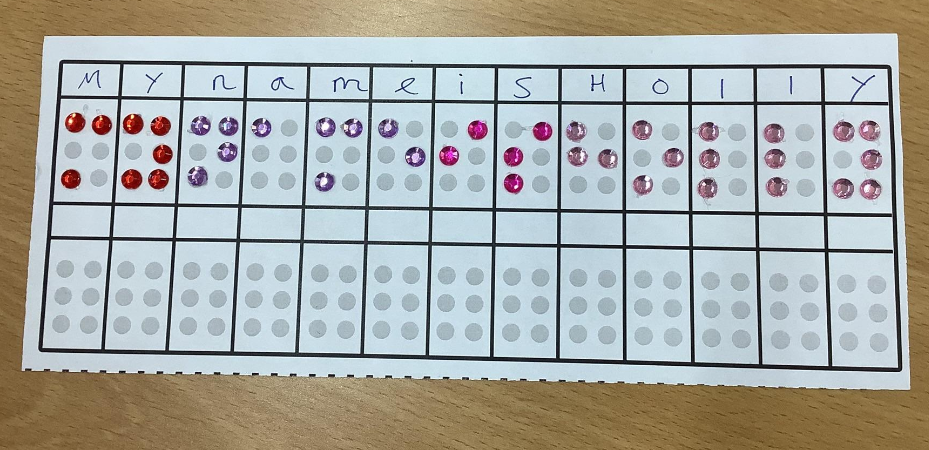 My name is Holly